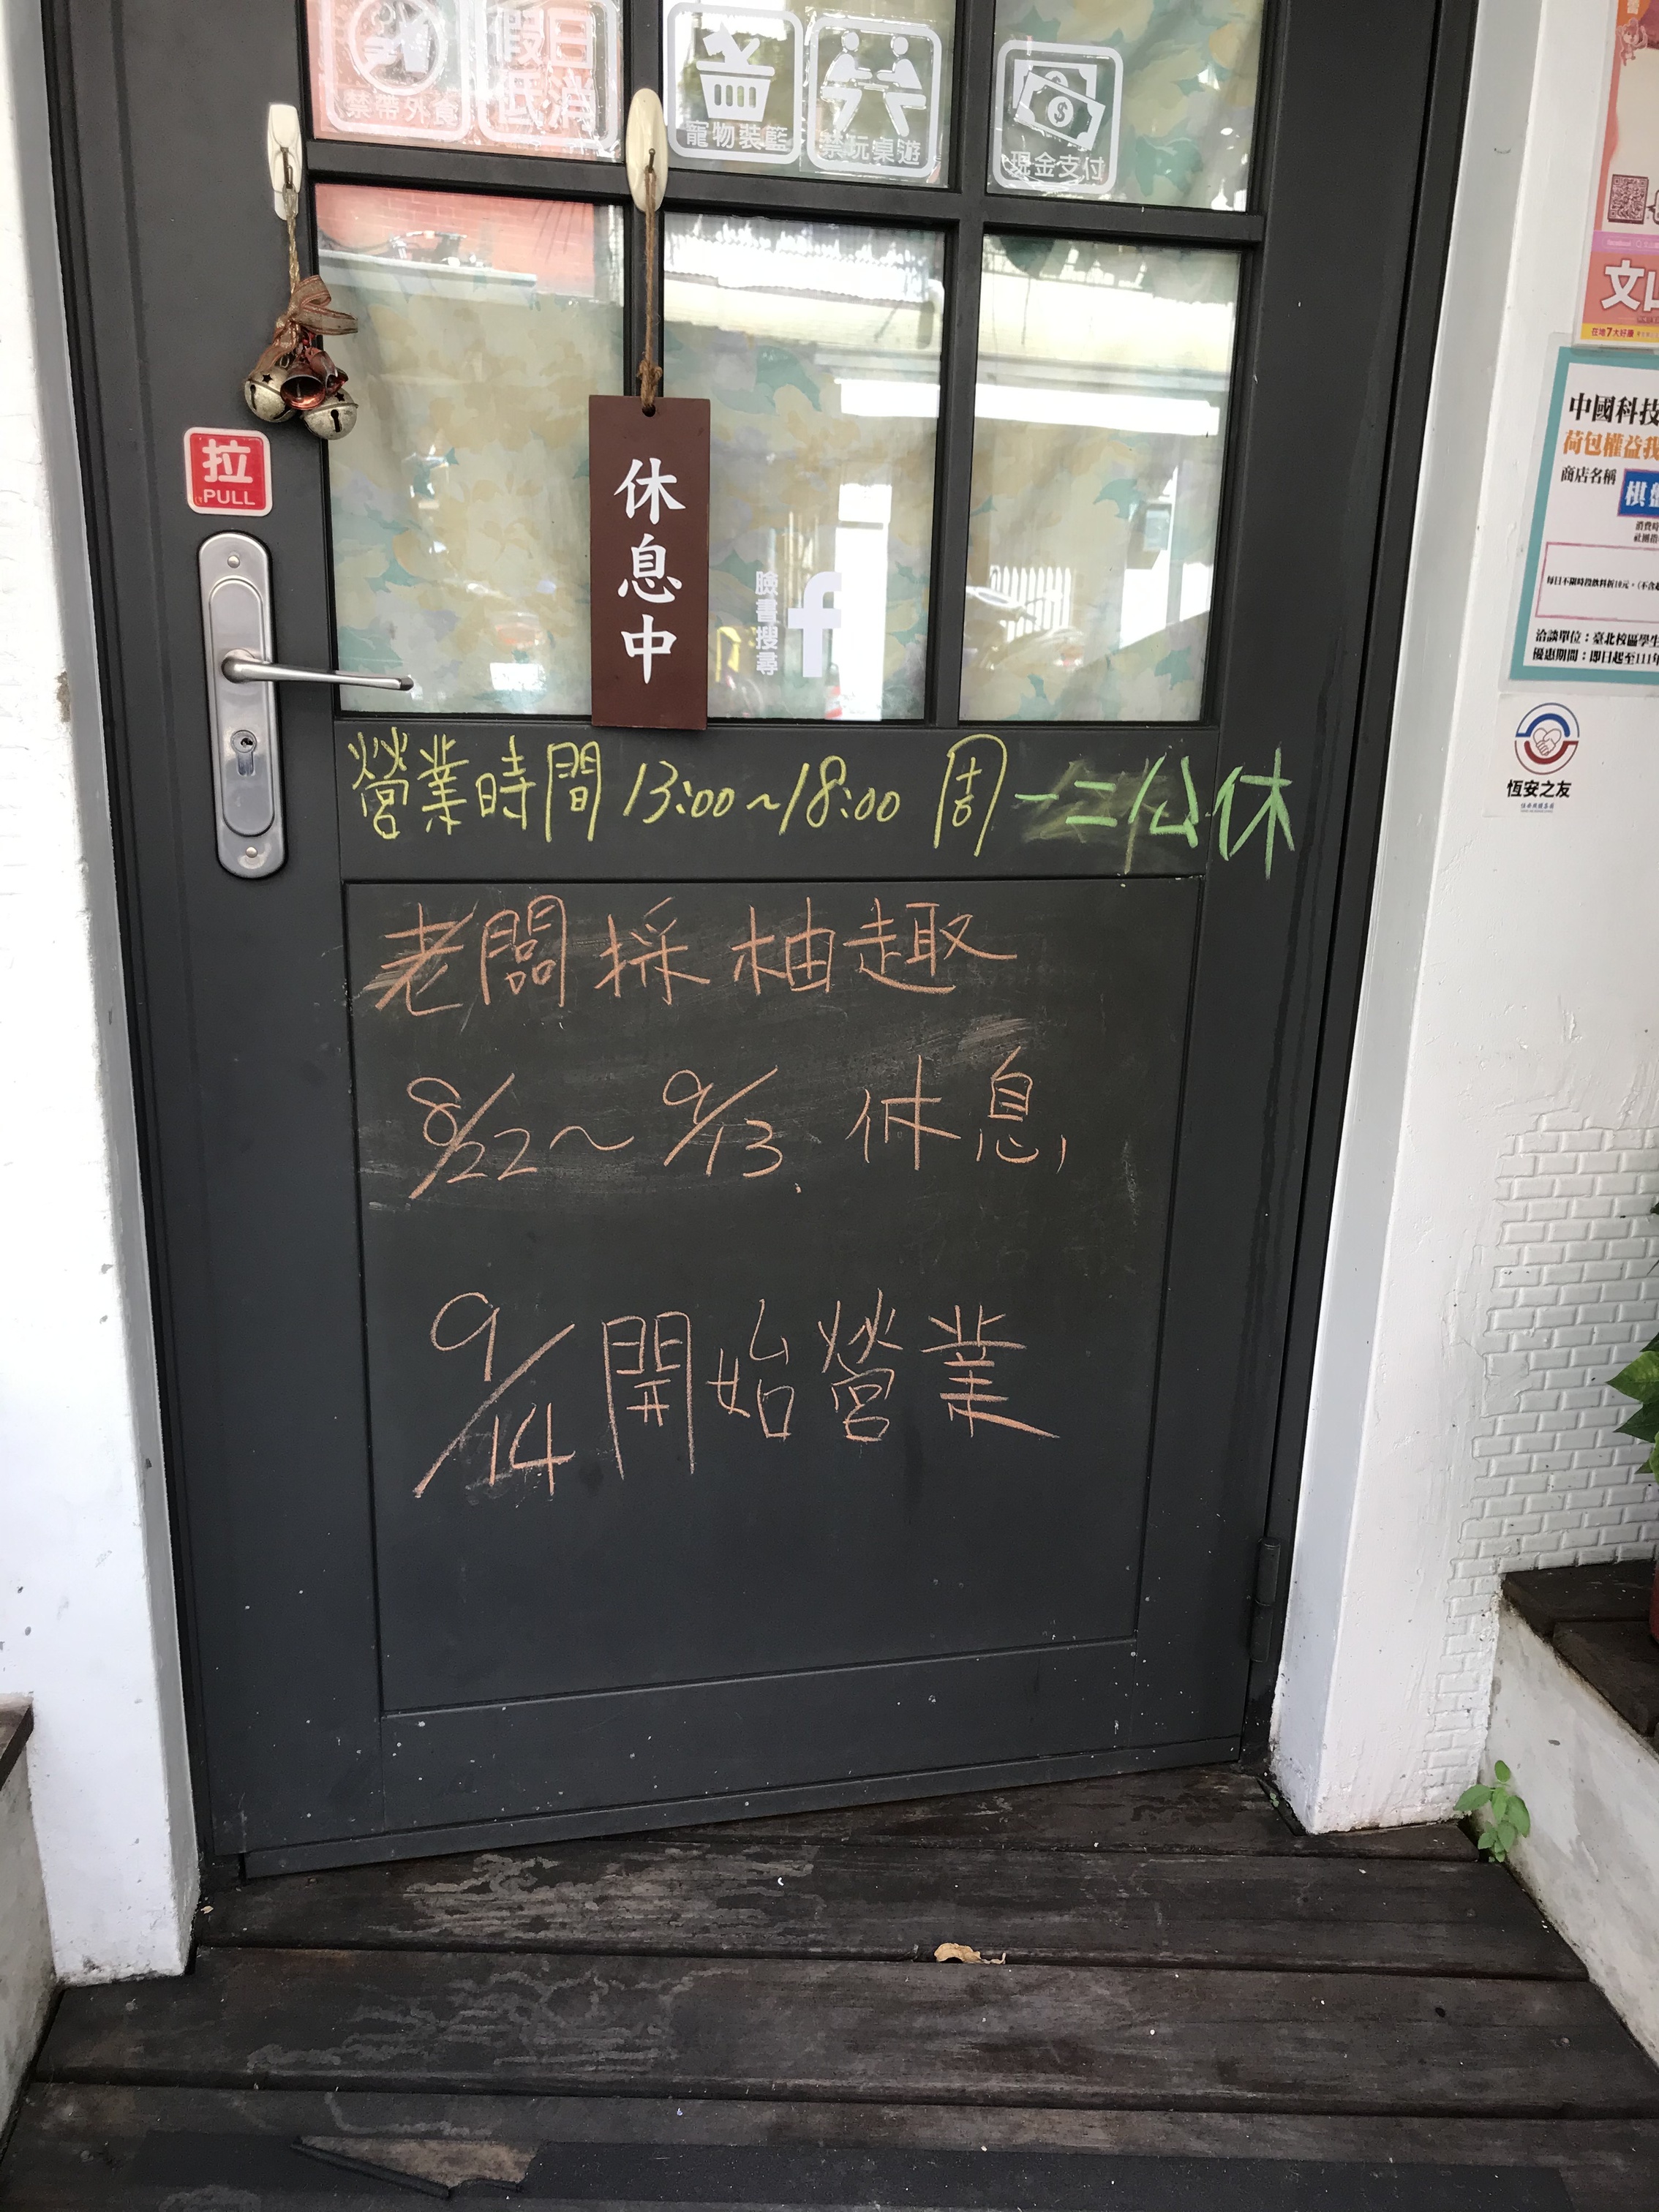 禁帶外食
假日
低消
寵物裝籃
禁玩桌遊
現金支付
拉
PULL
休息中
臉書搜尋
f
營業時間 13:00~18:00 周一二公休
老闆採柚趣
8/22~9/13 休息,
9/14開始營業
文山
在地7大好康
中國科技
荷包權益我
商店名稱
棋盤
每日不限時段飲料折10元,(不含
洽談單位：臺北校區學生
優惠期間：即日起至111年
恆安之友